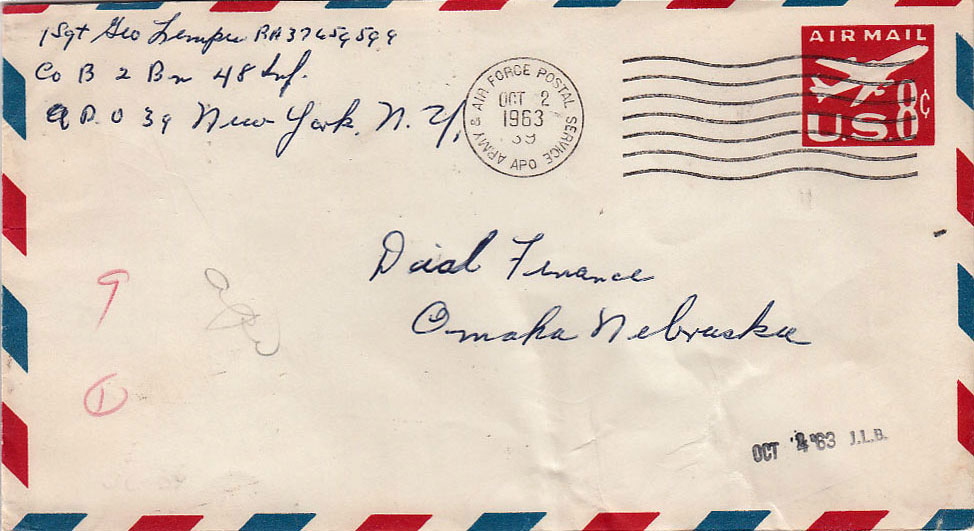 1Sgt Geo Lempu RA37659599
Co B 2 Bn 48 Inf.
A P O 39 New York, N. Y.
ARMY & AIR FORCE POSTAL SERVICE
OCT 2
1963
39
APO
AIR MAIL
8¢
U.S.
Dial Finance
Omaha Nebraska
9
1
OCT 4 '63 J.L.B.